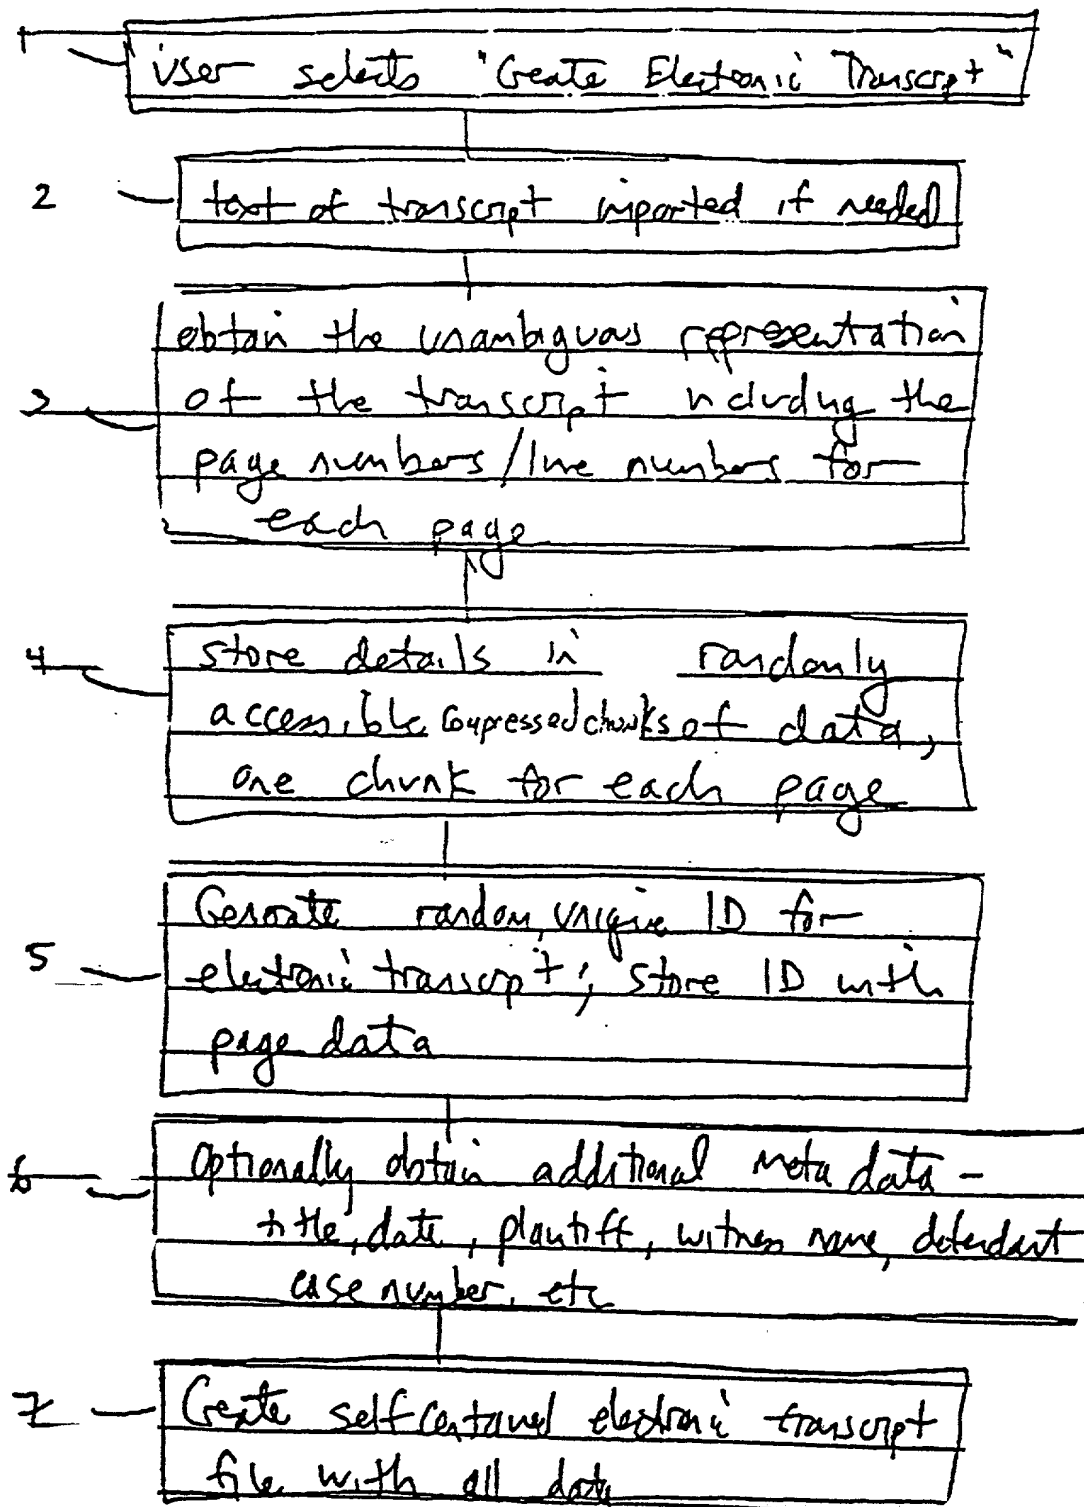 1
user selects "Create Electronic Transcript"
2
text of transcript imported if needed
obtain the unambiguous representation
3
of the transcript including the
page numbers/line numbers for
each page
4
store details in randomly
accessible compressed chunks of data,
one chunk for each page
Generate random, unique ID for
5
electronic transcript; store ID with
page data
6
Optionally obtain additional meta data -
title, date, plantiff, witness name, defendant
case number, etc
7
Create self contained electronic transcript
file with all data